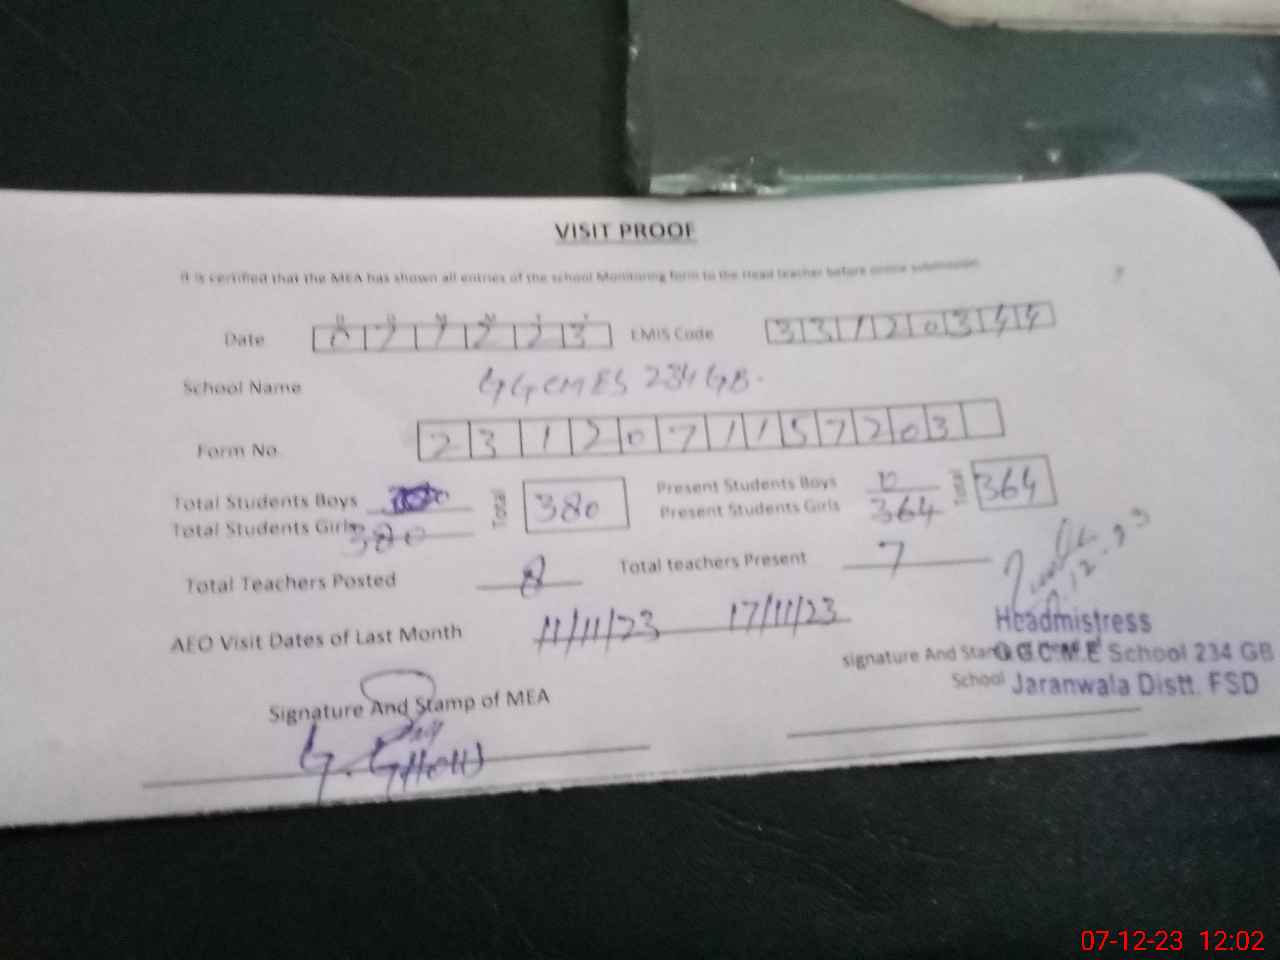 VISIT PROOF
It is certified that the MEA has shown all entries of the school Monitoring form to the Head teacher before online submission
Date 07 12 23 EMIS Code 33120344
School Name GGCMES 234 GB.
Form No. 2312071157203
Total Students Boys 0 Total 380 Present Students Boys 0 Total 364
Total Students Girls 380 Present Students Girls 364
Total Teachers Posted 8 Total teachers Present 7
AEO Visit Dates of Last Month 11/11/23 17/11/23
Headmistress
signature And Stamp G.G.C.M.E School 234 GB
School Jaranwala Distt. FSD
Signature And Stamp of MEA
07-12-23 12:02